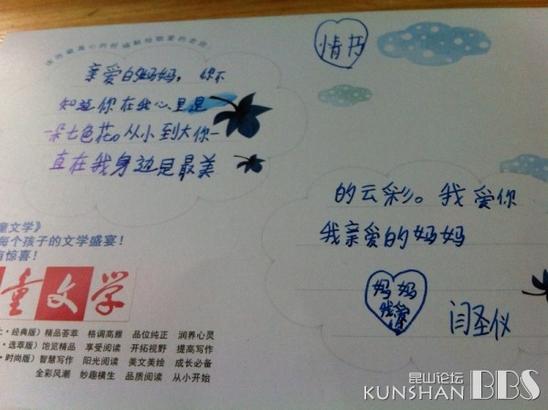 情书
亲爱的妈妈，你不
知道你在我心里是
一朵七色花。从小到大你一
直在我身边是最美
的云彩。我爱你
我亲爱的妈妈
妈妈
闫圣仪
童文学》
每个孩子的文学盛宴！
有惊喜！
童文学
·经典版）精品荟萃 格调高雅 品位纯正 润养心灵
·选萃版）饱览精品 享受阅读 开拓视野 提高写作
·时尚版）智慧写作 阳光阅读 美文美绘 成长必备
全彩风潮 妙趣横生 品质阅读 从小开始
昆山论坛
KUNSHAN BBS